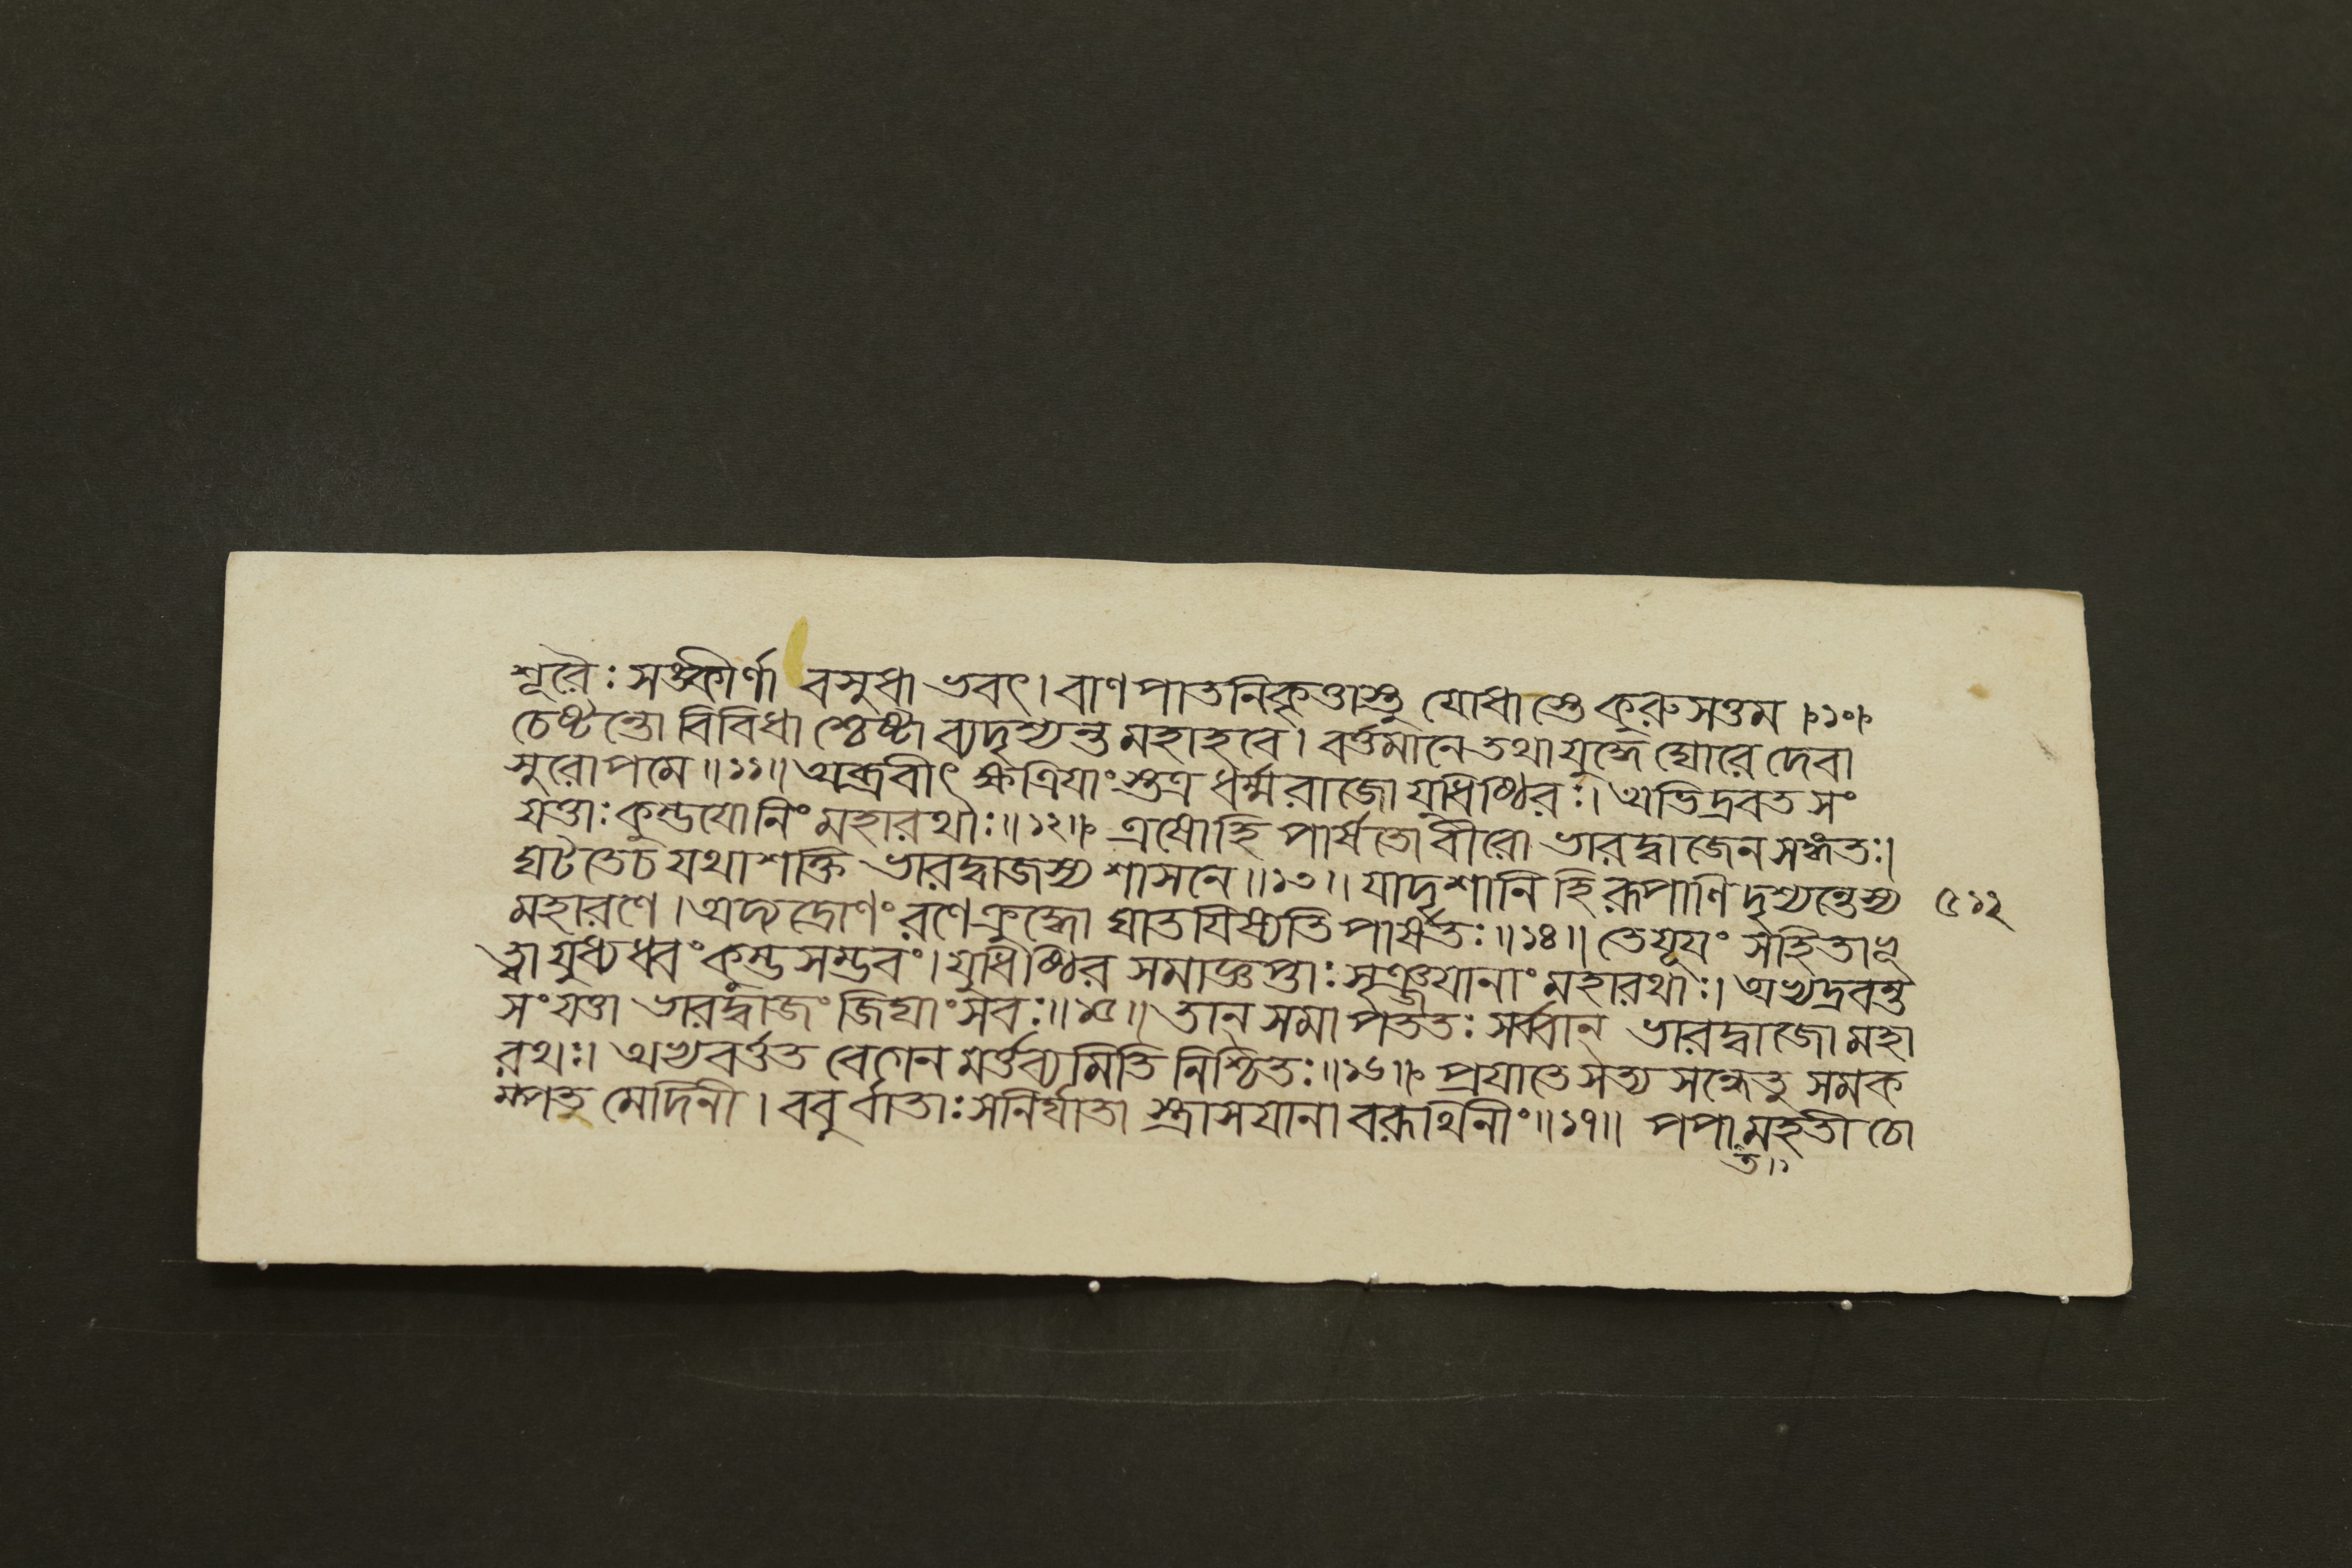 শূরৈঃ সঙ্কীর্ণা বসুধা ভবৎ। বাণপাতনিকৃত্তাস্তু যোধাস্তে কুরুসত্তম॥১০॥
চেষ্টন্তো বিবিধাশ্চেষ্টা ব্যদৃশ্যন্ত মহাহবে। বর্ত্তমানে তথা যুদ্ধে ঘোরে দেবা
সুরোপমে॥১১॥ অব্রবীৎ ক্ষত্রিযাংস্তত্র ধর্ম্মরাজো যুধিষ্ঠিরঃ। অভিদ্রবত সং
যত্তাঃ কুম্ভযোনিং মহারথাঃ॥১২॥ এষোহি পার্ষতো বীরো ভারদ্বাজেন সঙ্গতঃ।
ঘটতে চ যথাশক্তি ভারদ্বাজস্য শাসনে॥১৩॥ যাদৃশানি হি রূপাণি দৃশ্যন্তেস্য
মহারণে। অদ্য দ্রোণং রণে ক্রুদ্ধো ঘাতযিষ্যতি পার্ষতঃ॥১৪॥ তে যূযং সহিতা ভূ
ত্বা যুধ্যধ্বং কুম্ভসম্ভবং। যুধিষ্ঠির সমাজ্ঞপ্তাঃ সৃঞ্জযানাং মহারথাঃ। অভ্যদ্রবন্ত
সংযত্তা ভারদ্বাজং জিঘাংসবঃ॥১৫॥ তান্ সমাপততঃ সর্ব্বান্ ভারদ্বাজো মহা
রথঃ। অভ্যবর্ত্তত বেগেন মর্ত্তব্যমিতি নিশ্চিতঃ॥১৬॥ প্রযাতে সত্যসন্ধেতু সমক
ম্পত মেদিনী। ববুর্বাতাঃ সনির্ঘাতা স্ত্রাসযানা বরূথিনীং॥১৭॥ পপা মহতী চো
ত॥
৫১২